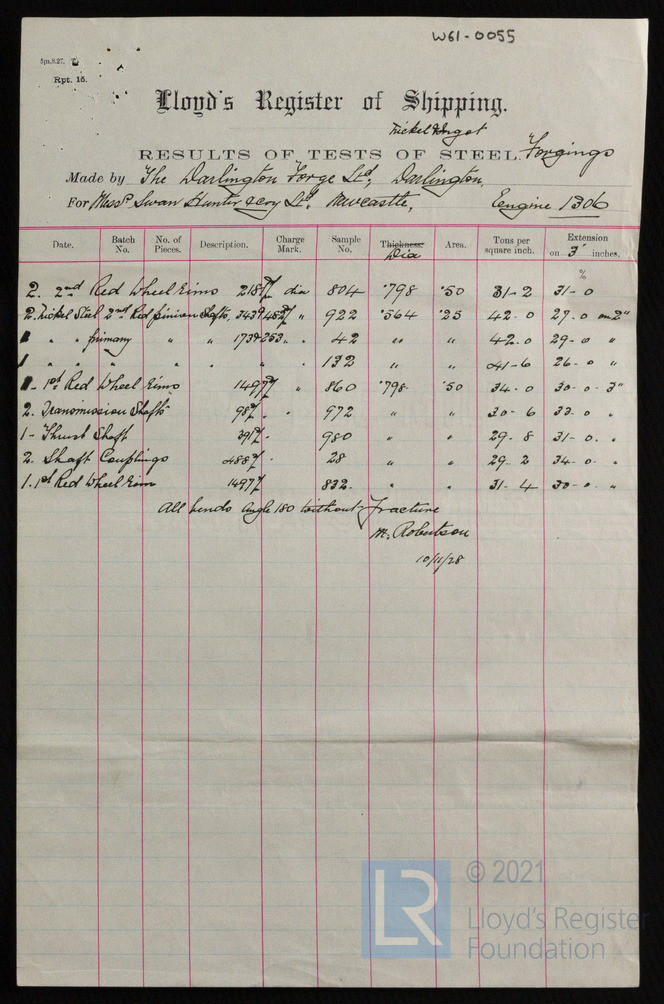 W61-0055
5m,8.27. T.
Rpt. 16.
Lloyd's Register of Shipping.
Nickel & Ingot
RESULTS OF TESTS OF STEEL Forgings
Made by The Darlington Forge Ltd, Darlington,
For Messrs Swan Hunter & Coy Ltd, Newcastle, Engine 1306
Date. Batch No. No. of Pieces. Description. Charge Mark. Sample No. Thickness. Dia Area. Tons per square inch. Extension on 3" inches.
%
2. 2nd Red Wheel Rims 218 dia 804 .798 .50 31-2 31-0
2. Nickel Steel 2nd Red pinion Shafts 922 .564 .25 42.0 27.0 on 2"
" " primary " " 42 " " 42.0 29-0 "
1 " " " " " 132 " " 41-6 26-0 "
1st Red Wheel Rims 1497 " 860 .798 .50 34-0 30-0-3"
2. Transmission Shafts 98 " 972 " " 30-6 33-0 "
1- Thrust Shaft 391 " 980 " " 29-8 31-0. "
2. Shaft Couplings 488 " 28 " " 29-2 34-0- "
1. 1st Red Wheel Rim 1497 832. " " 31-4 30-0 "
All bends angle 180 without fracture
M. Robertson
10/11/28
LR
© 2021
Lloyd's Register
Foundation